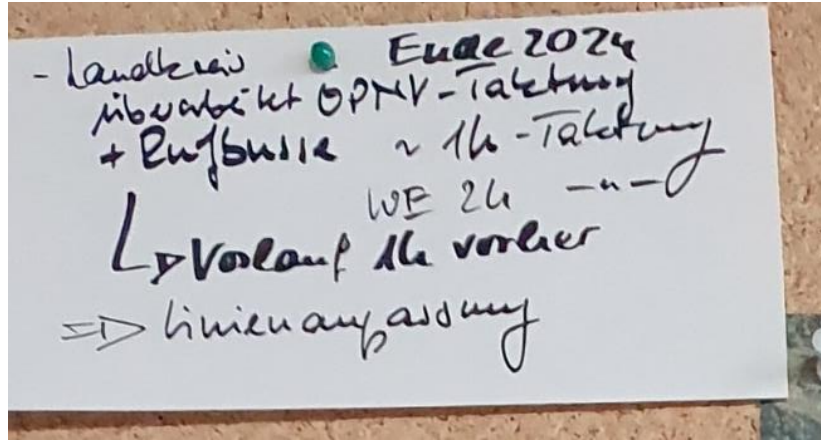 - Landkreis Ende 2024
überarbeitet ÖPNV-Taktung
+ Rufbusse ~ 1h-Taktung
WE 2h -"-
↳ Vorlauf 1h vorher
=> Linienanpassung